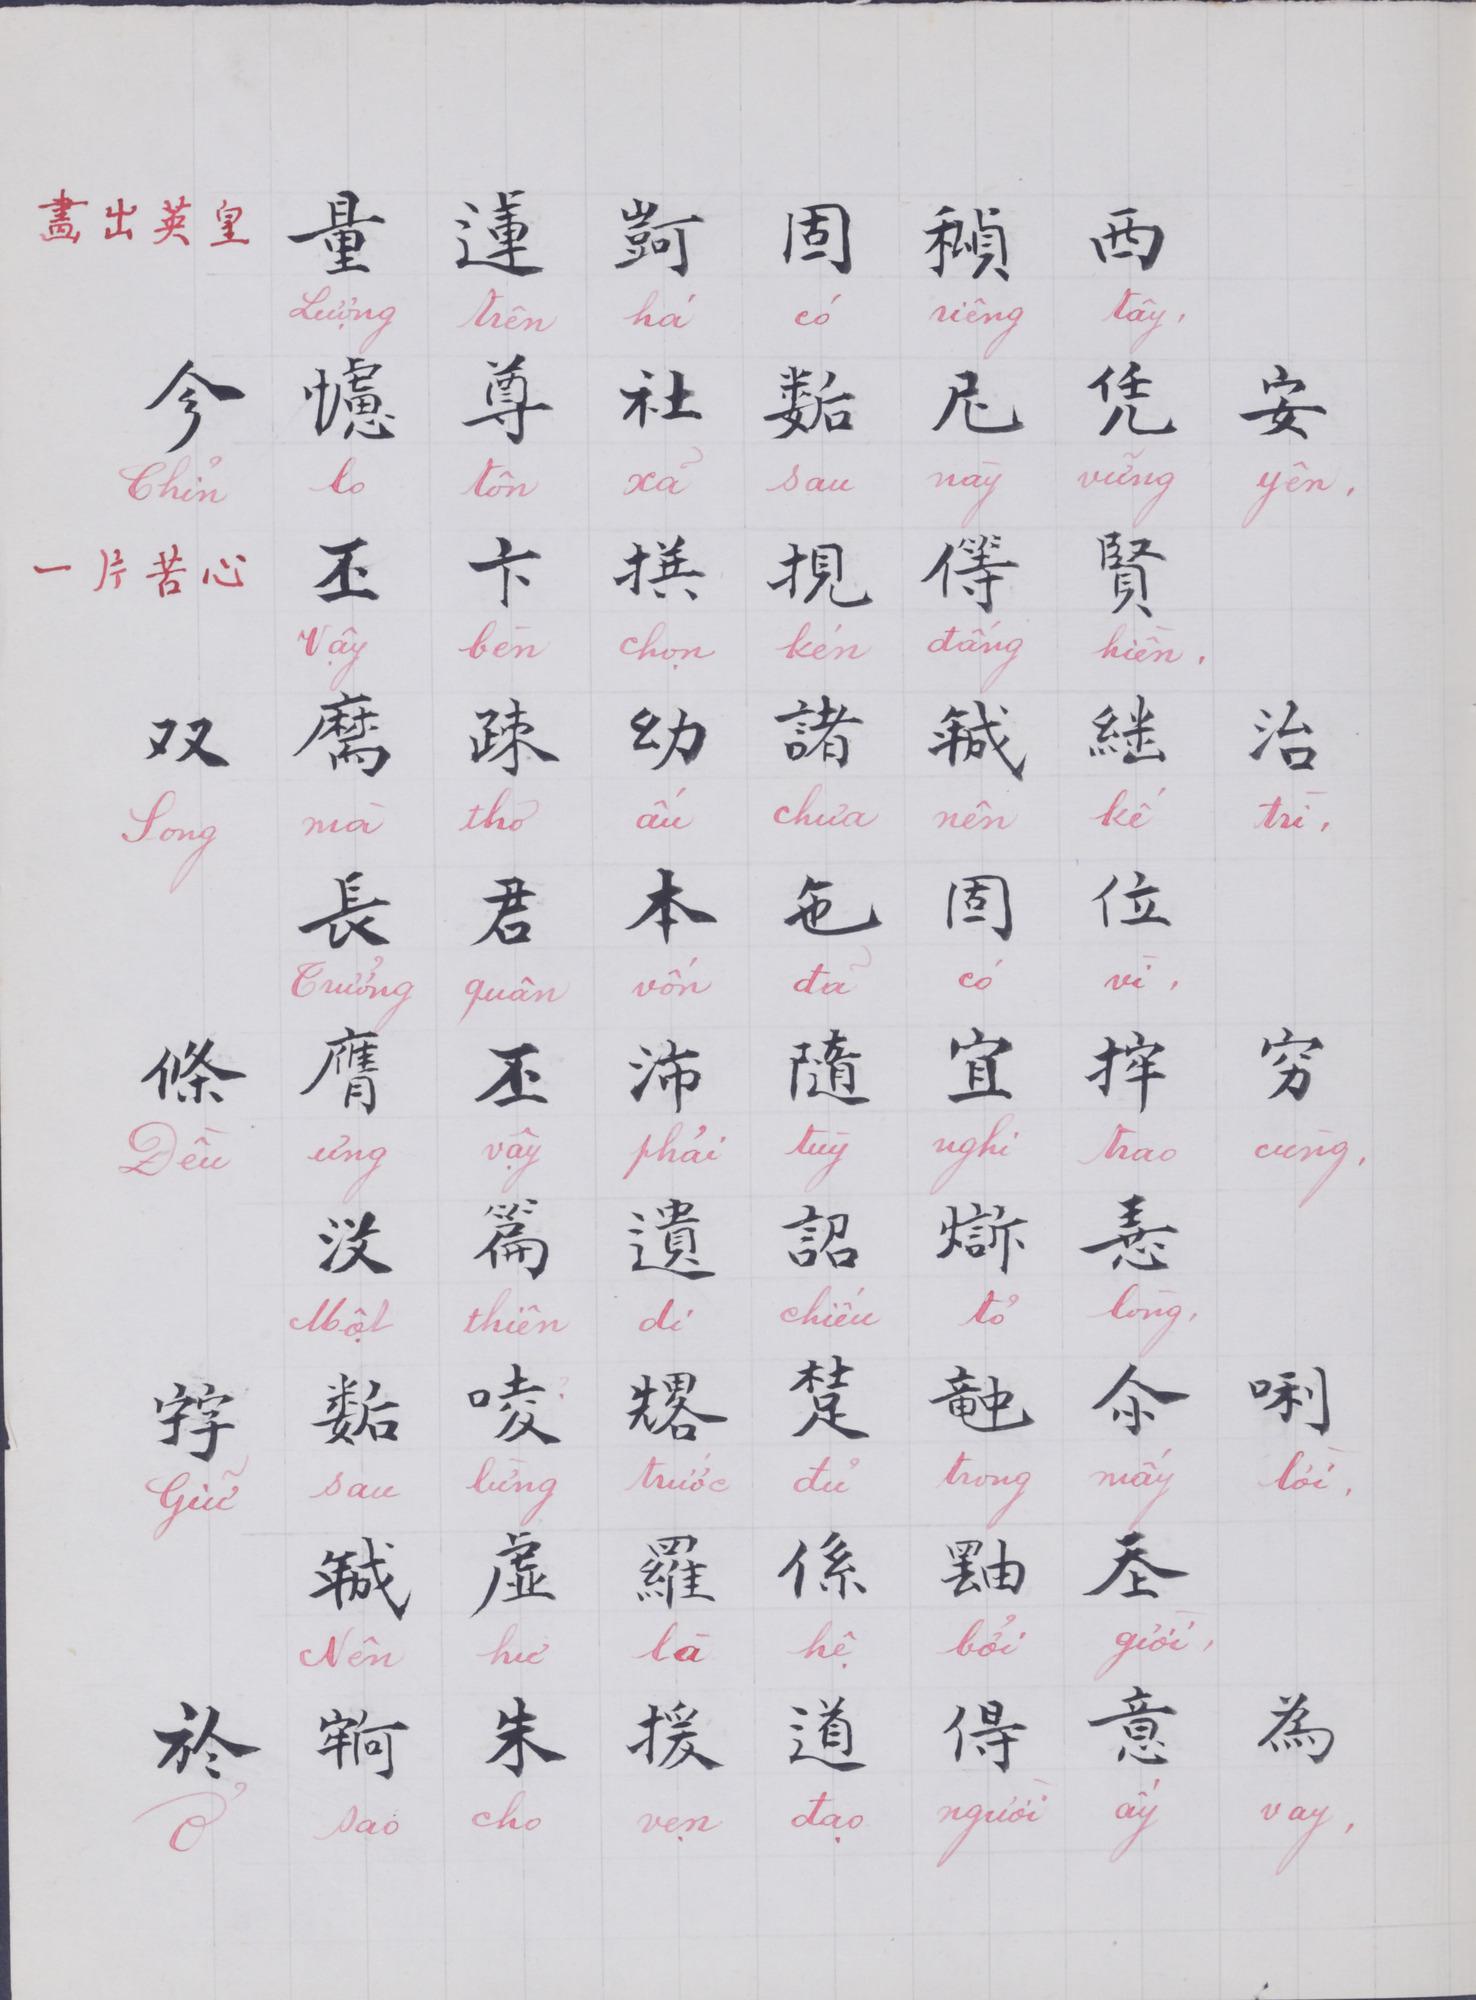 畫出英皇
量蓮󰠲固稹西
Lượng trên há có riêng tây,
今憈尊社𢖕尼凭安
Chỉn lo tôn xả sau nãy vững yên,
一片苦心
丕卞撰挸㑶賢
Vậy bèn chọn kén đấng hiền,
双麿疎幼諸𢧚継治
Song mà thơ ấu chưa nên kế trì,
長君本㐌固位
Trưởng quân vốn đả có vì,
條膺丕沛隨宜捽穷
Đều ưng vậy phải tùy nghi trao cùng,
没篇遺詔𤏣𢚸
Một thiên di chiếu tỏ lòng,
𡨹𢖕唛𠓀楚𥪝尒唎
Giữ sau lừng trước đủ trong mấy lời,
𢧚虛羅係𪽝𡗶
Nên hư là hệ bởi giời,
於𡨧朱援道得意為
Ở sao cho vẹn đạo người ấy vay,